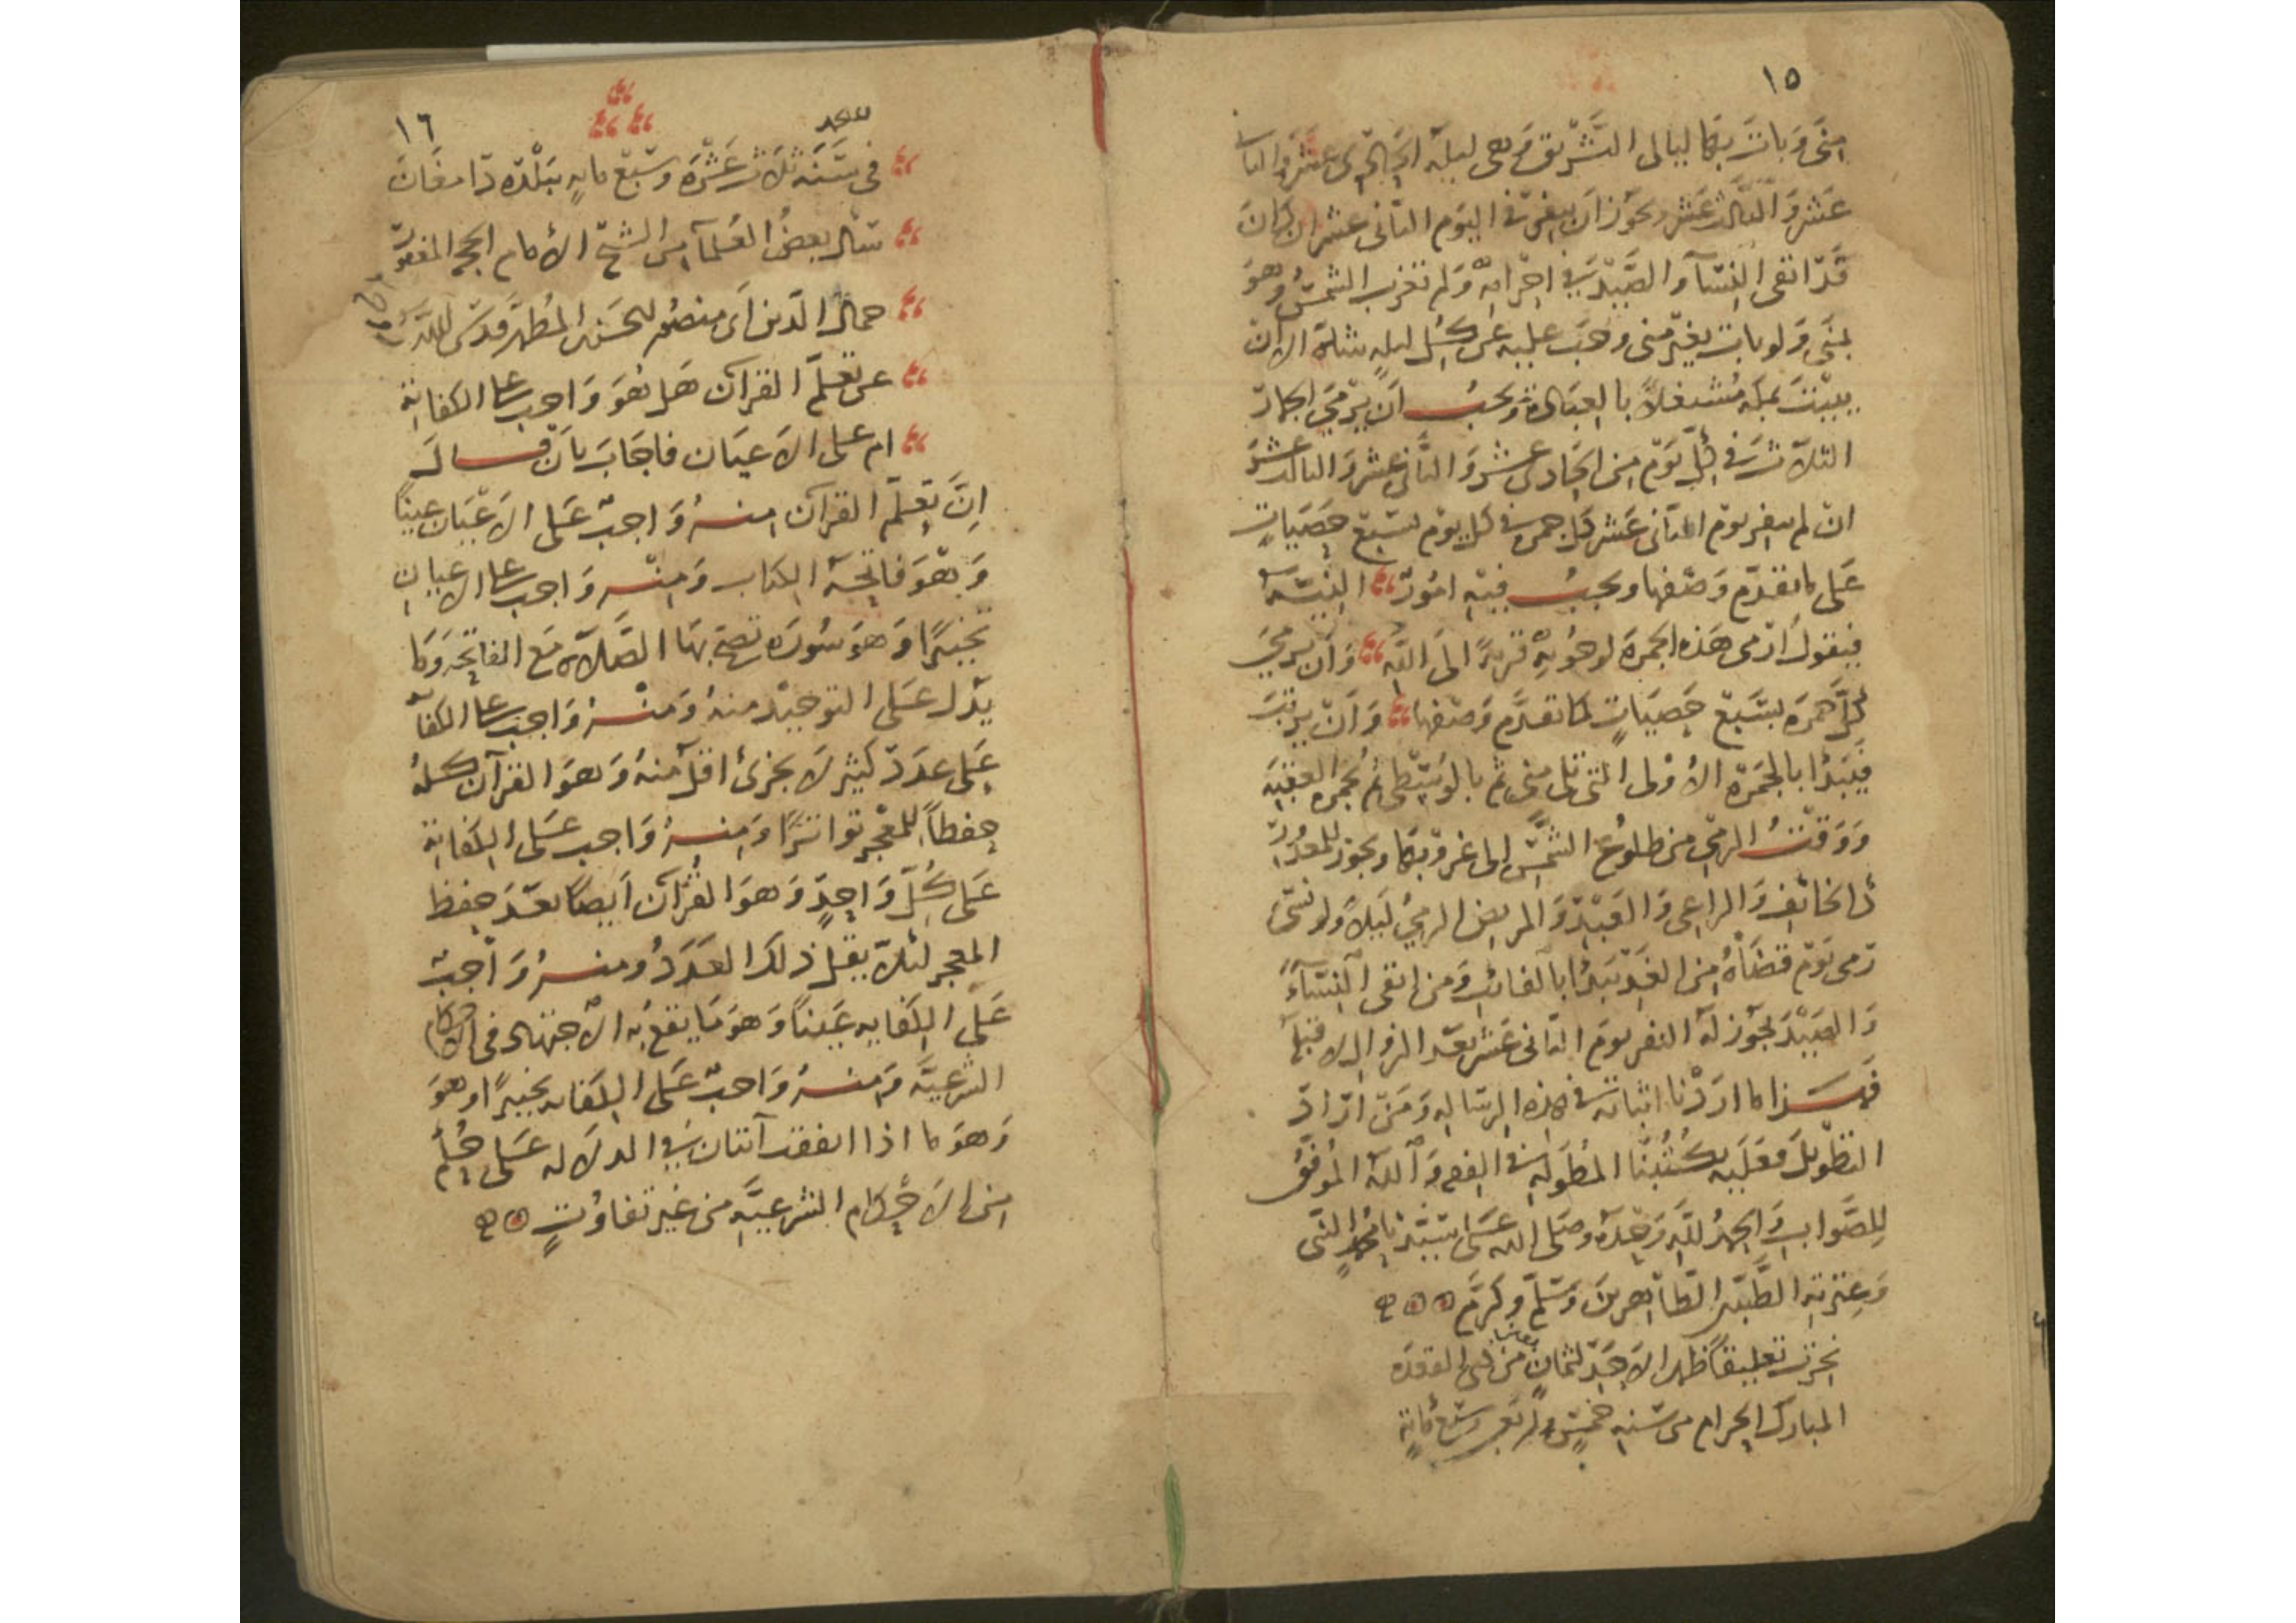 ١٥
منى وبات بها ليالى التشريق وهى ليلة الحادى عشر والثانى
عشر والثالث عشر ويجوز ان ينفر فى اليوم الثانى عشر ان كان
قد اتقى النساء والصيد فى احرامه ولم تغرب الشمس وهو
بمنى ولو بات بغير منى وجب عليه عن كل ليلة شاة الا ان
يبيت بمكة مشتغلاً بالعبادة ويجب ان يرمى الجمار
الثلاث فى كل يوم من الحادى عشر والثانى عشر والثالث عشر
ان لم ينفر يوم الثانى عشر كل جمرة فى كل يوم بسبع حصيات
على ما تقدم وصفها ويجب فيه امور النية
فيقول ارمى هذه الجمرة لوجوبه قربة الى الله وان يرمى
كل جمرة بسبع حصيات كما تقدم وصفها وان يرتب
فيبدأ بالجمرة الأولى التى تلى منى ثم بالوسطى ثم بجمرة العقبة
ووقت الرمى من طلوع الشمس الى غروبها ويجوز للمعذور
كالخائف والراعى والعبد والمريض الرمى ليلاً ولو نسى
رمى يوم قضاه من الغد يبدأ بالفائت ومن اتقى النساء
والصيد يجوز له النفر يوم الثانى عشر بعد الزوال لا قبله
فهذا ما اردنا اثباته فى هذه الرسالة ومن اراد
التطويل فعليه بكتبنا المطولة فى الفقه والله الموفق
للصواب والحمد لله وحده وصلى الله على سيدنا محمد النبى
وعترته الطيبين الطاهرين وسلم وكرم
نجزت تعليقاً ظهر الاحد لثمان من ذى القعدة
المبارك الحرام من سنة خمس واربعين وسبع مائة
١٦
فى سنة ثلاث عشرة وسبع مايه ببلدة دامغان
سأل بعض العلماء من الشيخ الأمام
جمال الدين ابى منصور الحسن بن المطهر قدس الله
عن تعلم القرآن هل هو واجب على الكفاية
ام على الاعيان فاجاب بان قال
ان تعلم القرآن منه واجب على الاعيان عيناً
وهو فاتحة الكتاب ومنه واجب على الاعيان
تخييراً وهو سورة تصح بها الصلاة مع الفاتحة وما
يدل على التوحيد منه ومنه واجب على الكفاية
على عدد كثير لا يجزئ اقل منه وهو القرآن كله
حفظاً للمعجر تواتراً ومنه واجب على الكفاية
على كل واحد وهو القرآن ايضاً بعد حفظ
المعجر لئلا يقل ذلك العدد ومنه واجب
على الكفايه عيناً وهو ما يقع به الاجتهاد فى الاحكام
الشرعية ومنه واجب على الكفايه تخييراً وهو
وهو ما اذا اتفقت آيتان فى الدلاله على حكم
من الاحكام الشرعية من غير تفاوت